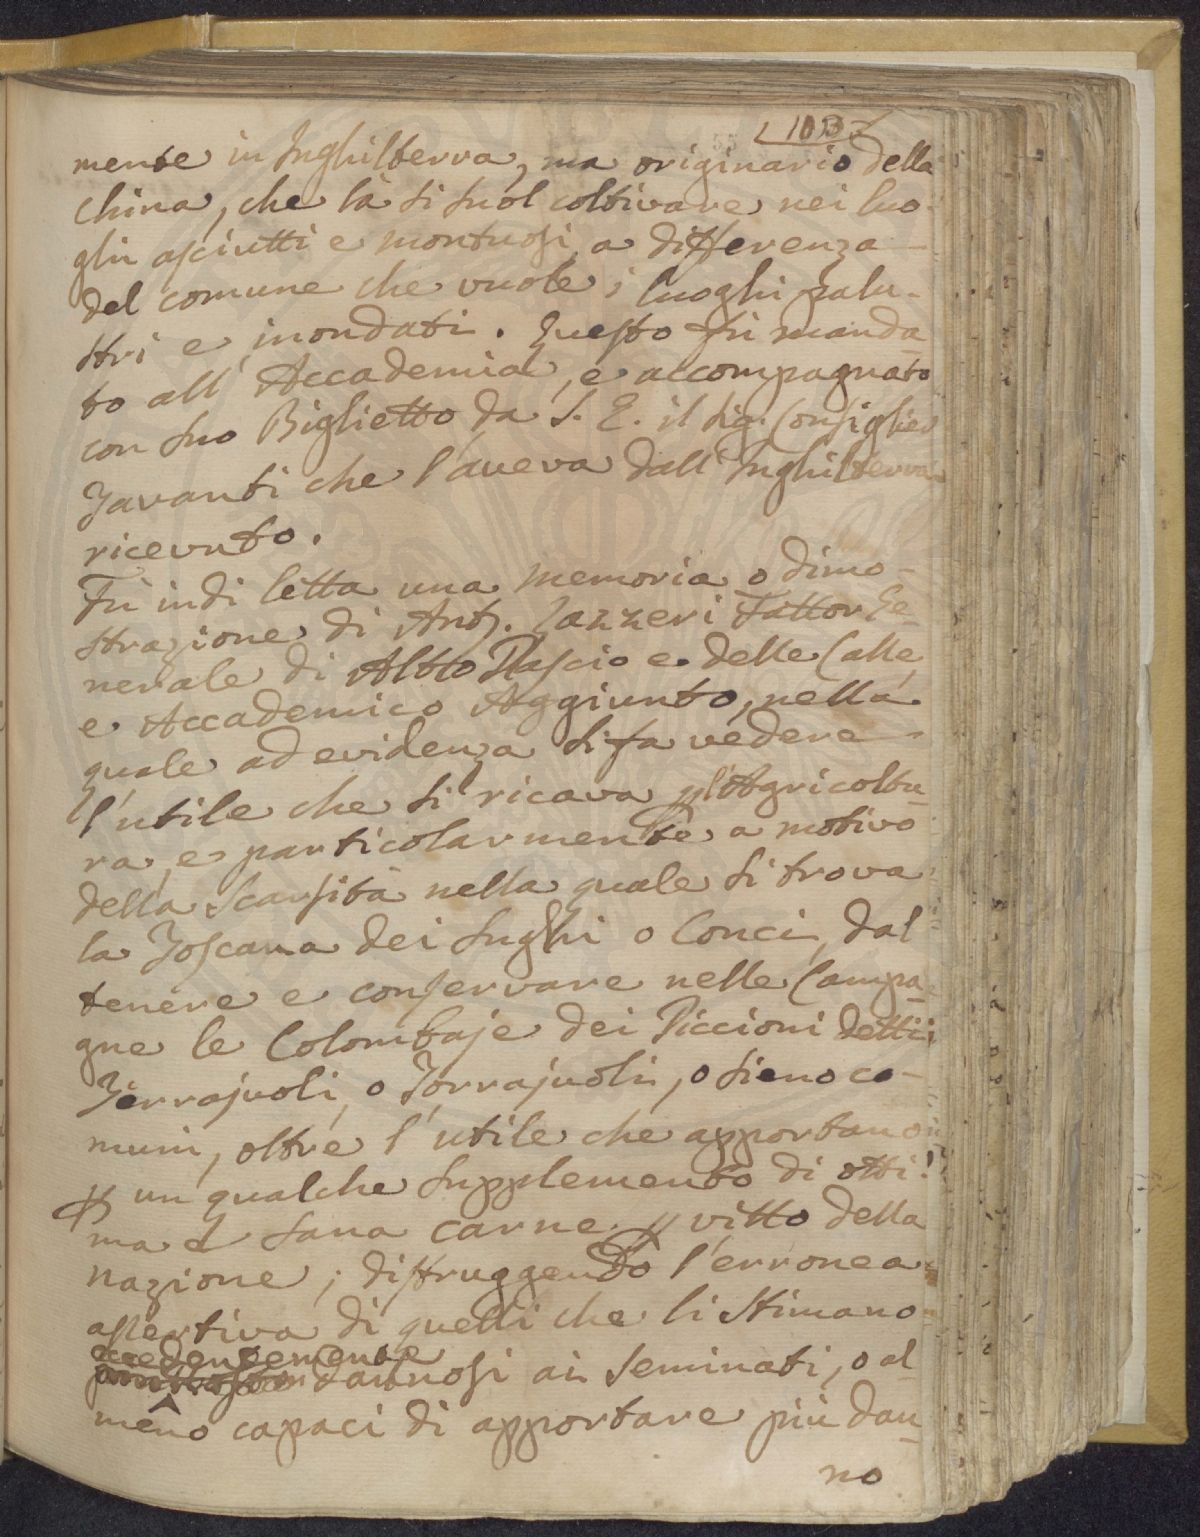 103
mente in Inghilterra, ma originario della
China, che là si suol coltivare nei luo-
ghi asciutti e montuosi a differenza
del comune che vuole i luoghi palu-
stri e inondati. Questo fù manda-
to all' Accademia, e accompagnato
con suo Biglietto da S. E. il Sig. Consiglier
Tavanti che l'aveva dall' Inghilterra
ricevuto.
Fù indi letta una memoria o dimo-
strazione di Ant. Lazzeri Fattor Ge-
nerale di Alto Pascio e delle Calle,
e Accademico Aggiunto, nella
quale ad evidenza si fa vedere
l'utile che si ricava p l'Agricoltu-
ra, e particolarmente a motivo
della Scarsità nella quale si trova
la Toscana dei Sughi o Conci, dal
tenere e conservare nelle Campa-
gne le Colombaje dei Piccioni detti
Terrajuoli, o Torrajuoli, o sieno co-
muni, oltre l'utile che apportano
p un qualche supplemento di otti-
ma e sana carne p vitto della
nazione; distruggendo l'erronea
assertiva di quelli che li stimano
eccedentemente
dannosi ai Seminati, o al
meno capaci di apportare più dan-
no